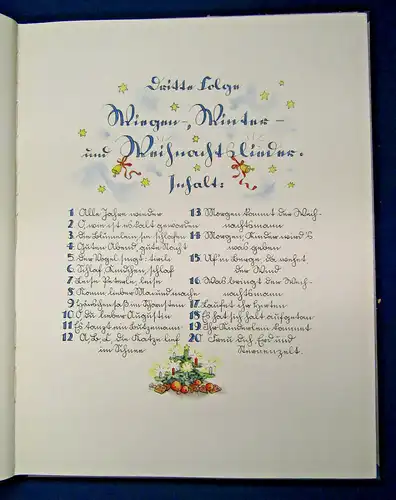 Dritte Folge
Wiegen-, Winter-
und Weihnachtslieder.
Inhalt:
1 Alle Jahre wieder
2 O, wie ist es kalt geworden
3 Die Blümelein, sie schlafen
4 Guten Abend, gute Nacht
5 Der Vogel singt: tirili
6 Schlaf, Kindchen, schlaf
7 Leise Peterle, leise
8 Komm lieber Mai und mache
9 saß im Schornstein
10 O du lieber Augustin
11 Es tanzt ein Butzemann
12 A, B, C, die Katze lief
im Schnee
13 Morgen kommt der Weih-
nachtsmann
14 Morgen, Kinder, wird's
was geben
15 Uf'm Berge, da wehet
der Wind
16 Was bringt der Weih-
nachtsmann
17 Laufet ihr Hirten
18 Es hat sich halt aufgetan
19 Ihr Kinderlein kommet
20 Freu dich, Erd und
Sternenzelt.